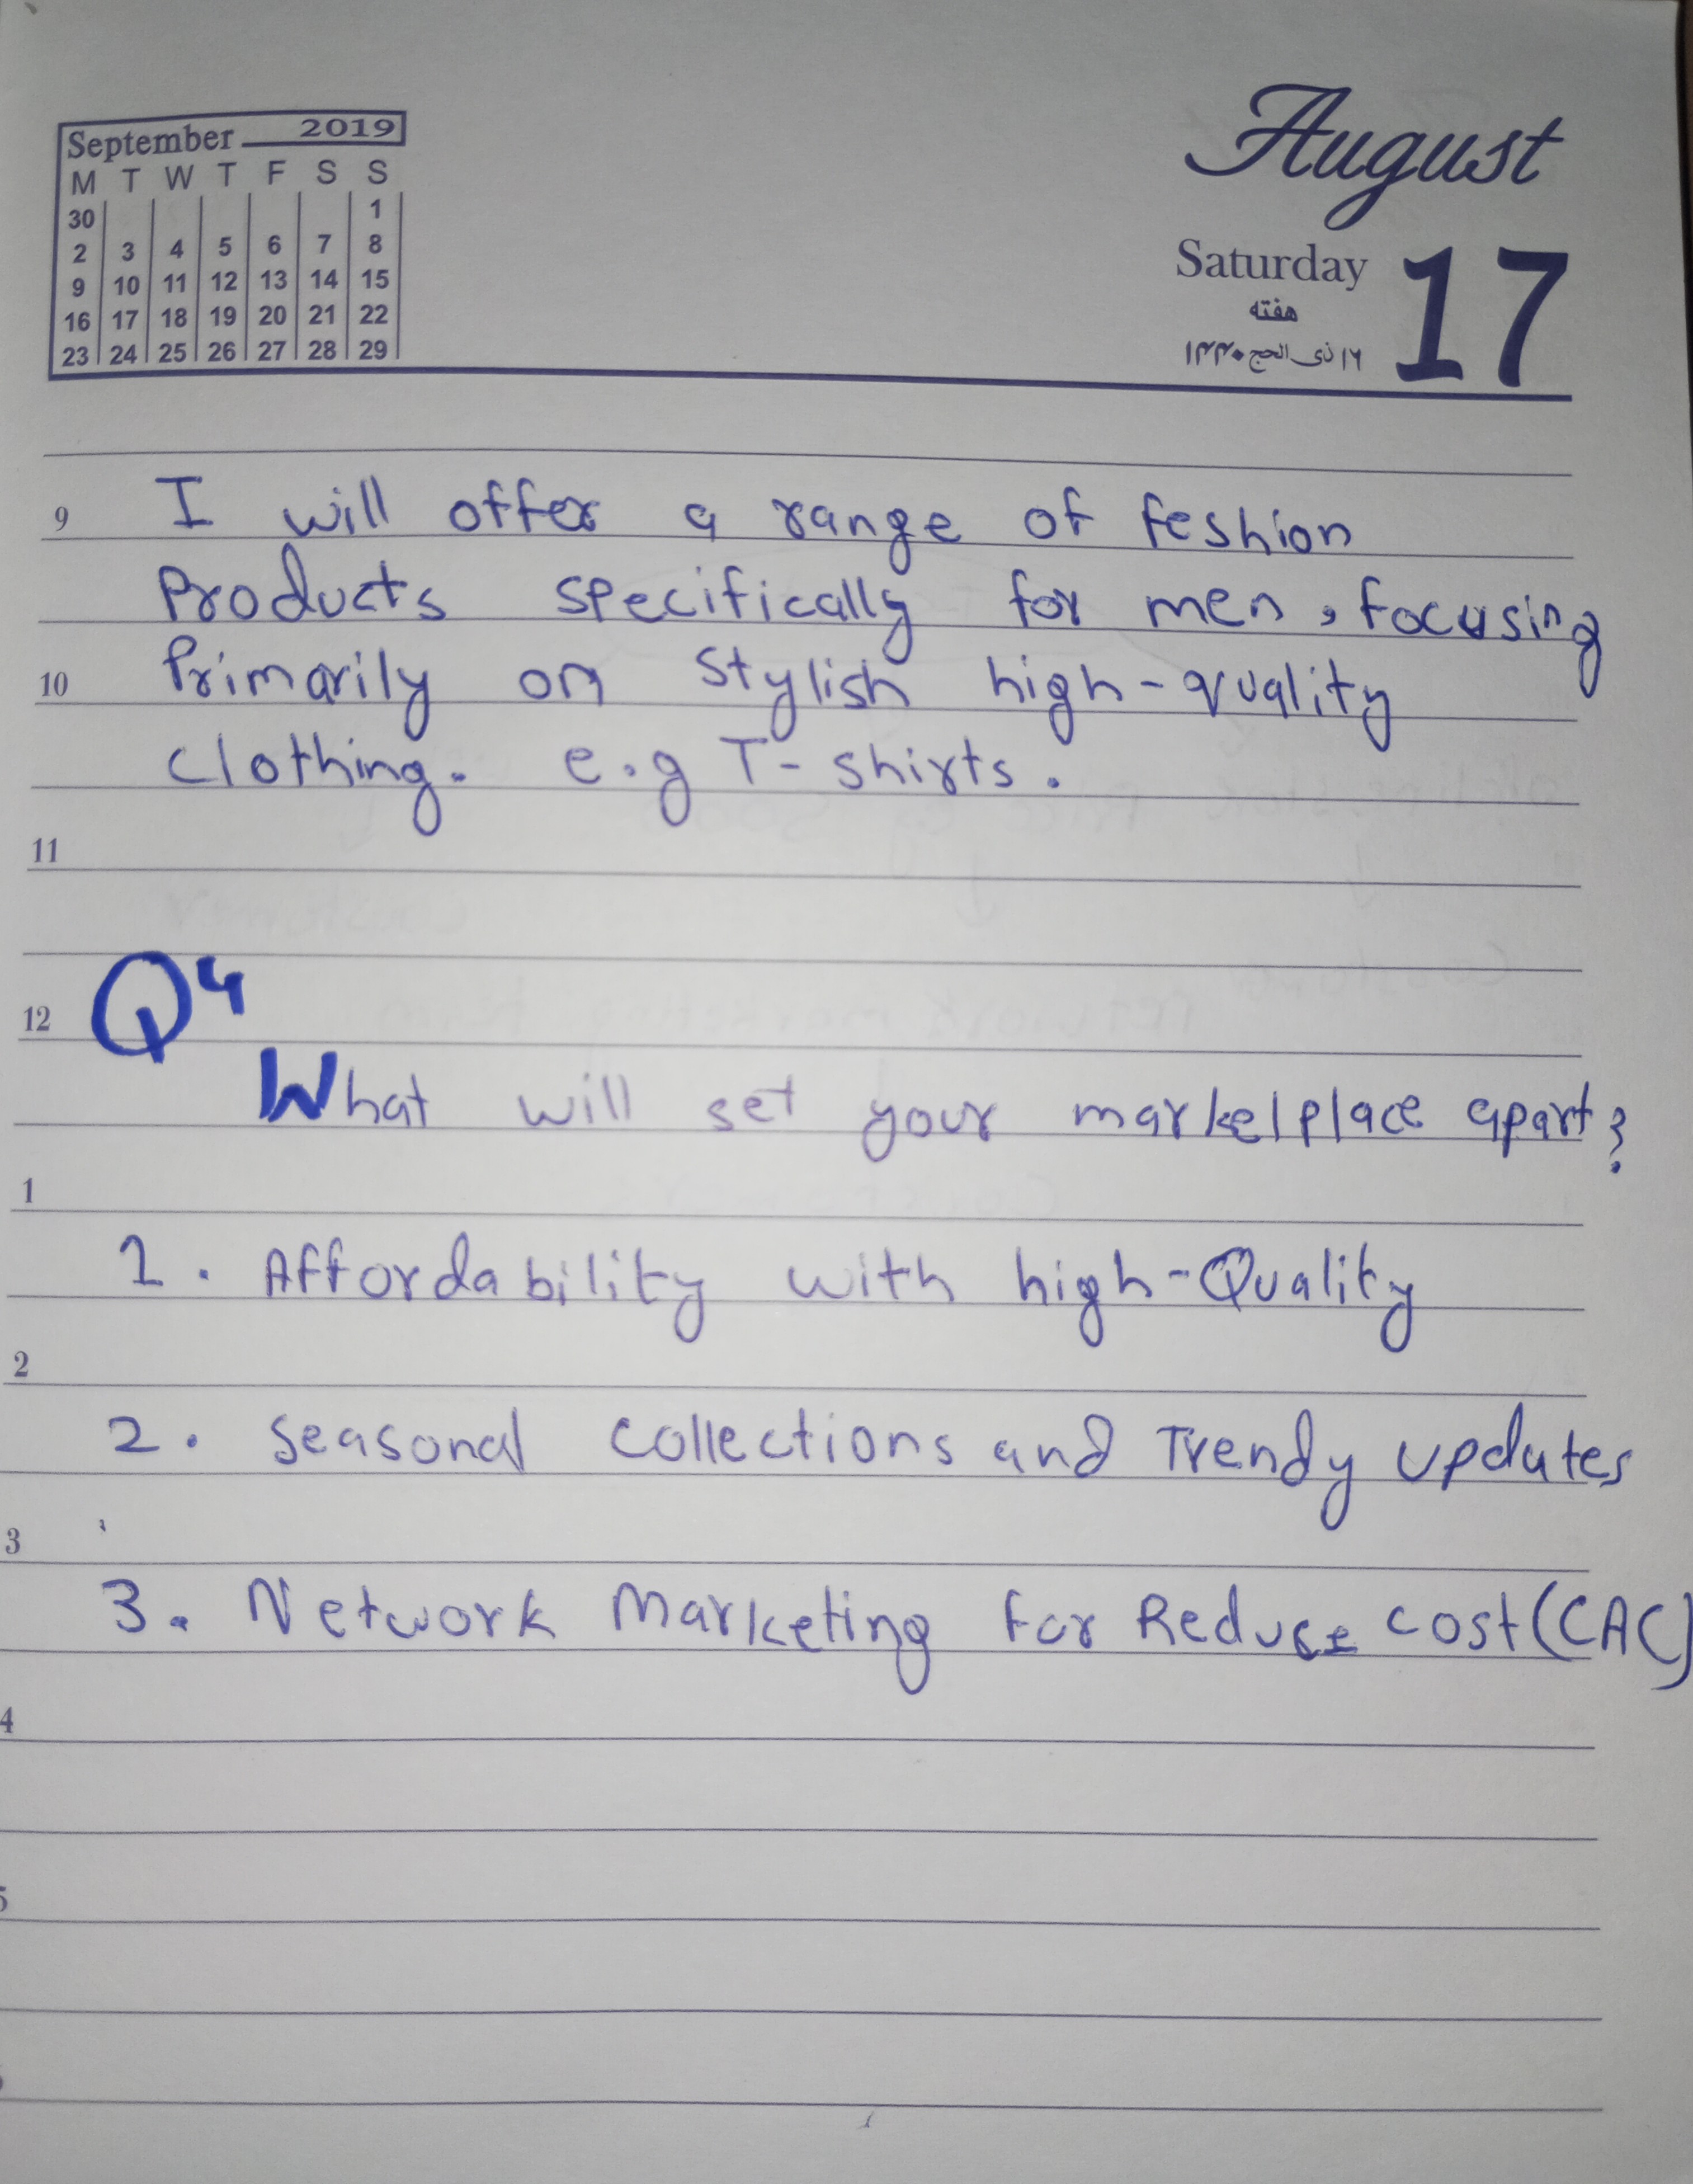 September 2019
M T W T F S S
30 1
2 3 4 5 6 7 8
9 10 11 12 13 14 15
16 17 18 19 20 21 22
23 24 25 26 27 28 29
August
Saturday 17
هفته
۱۶ ذی الحج ۱۴۴۰
9 I will offer a range of feshion
Products specifically for men, focusing
10 Primarily on stylish high-quality
clothing. e.g T-shirts.
11
12 Q4
What will set your markelplace apart?
1
1. Affordability with high-Quality
2
2. Seasonal collections and Trendy updates
3
3. Network Marketing for Reduce cost (CAC)
4
5